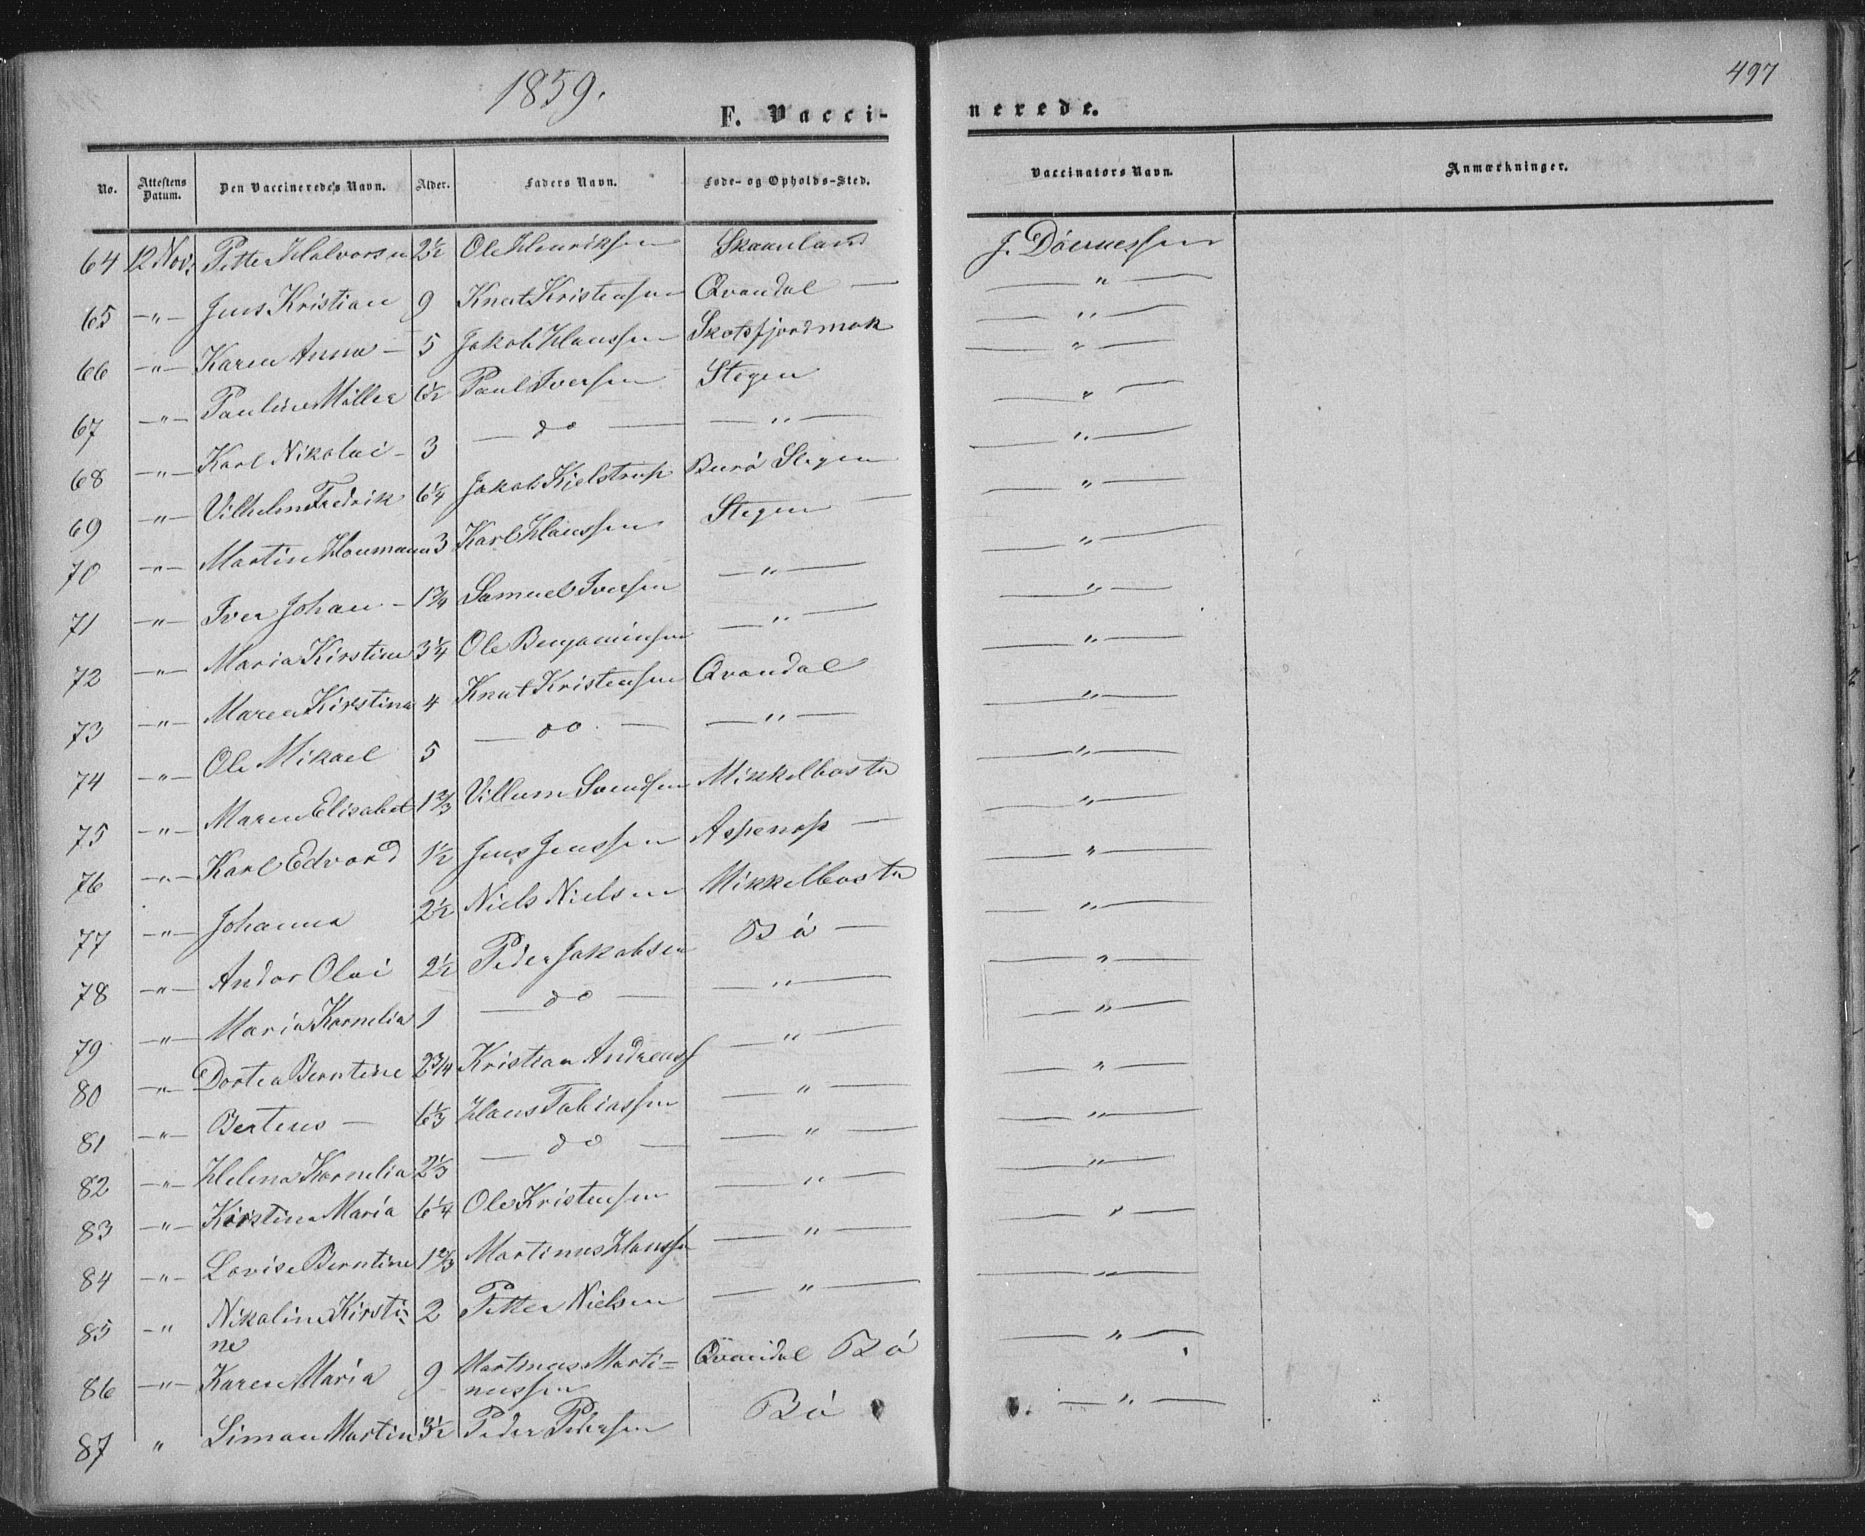 1859.
497
F. Vacci-
nerede.
No. Attestens Datum. Den Vaccineredes Navn. Alder. Faders Navn. Føde- og Opholds-Sted. Vaccinators Navn. Anmærkninger.
64 12 Nov: Petter Halvorsen 2½ Ole Henriksen Skaanland J. Döernessen
65 -"- Jens Kristian 9 Knut Kristensen Qvandal — -"-
66 -"- Karen Anna - 5 Jakob Hanssen Skotsfjordmok -"-
67 -"- Pauline Möller 6½ Paul Iversen Stegen -"-
68 -"- Karl Nikolai - 3 — do — -"- -"-
69 -"- Vilhelm Fredrik 6¼ Jakob Kjelstrup Burö Stegen -"-
70 -"- Martin Houmann 3 Karl Hanssen Stegen -"-
71 -"- Iver Johan - 1¾ Samuel Iversen -"- -"-
72 -"- Maria Kirstine 3¼ Ole Benjaminsen -"- -"-
73 -"- Maren Kirstina 4 Knut Kristensen Qvandal -"-
74 -"- Ole Mikael 5 — do — -"- -"-
75 -"- Maren Elisabet 1⅔ Villum Svendsen Mikkelbostu -"-
76 -"- Karl Edvard 1½ Jens Jenssen Aspenes — -"-
77 -"- Johanna 2½ Niels Nielsen Mikkelbostu -"-
78 -"- Andor Olai 2½ Peder Jakobsen Bö — -"-
79 -"- Maria Kornelia 1 — do — -"- -"-
80 -"- Dortea Berntine 2¾ Kristian Andreass -"- -"-
81 -"- Berteus — 6⅓ Hans Tobiassen -"- -"-
82 -"- Helena Kornelia 2⅓ — do — -"- -"-
83 -"- Kirstine Maria 6¼ Ole Kristensen -"- -"-
84 -"- Lovise Berntine 1⅔ Martinus Hanssen -"- -"-
85 -"- Nikoline Kirsti- 2 Petter Nielsen -"- -"-
ne
86 -"- Karen Maria 9 Martinus Marti= Qvandal Bö -"-
nussen
87 " Simon Martin 3½ Peder Pedersen Bö -"-